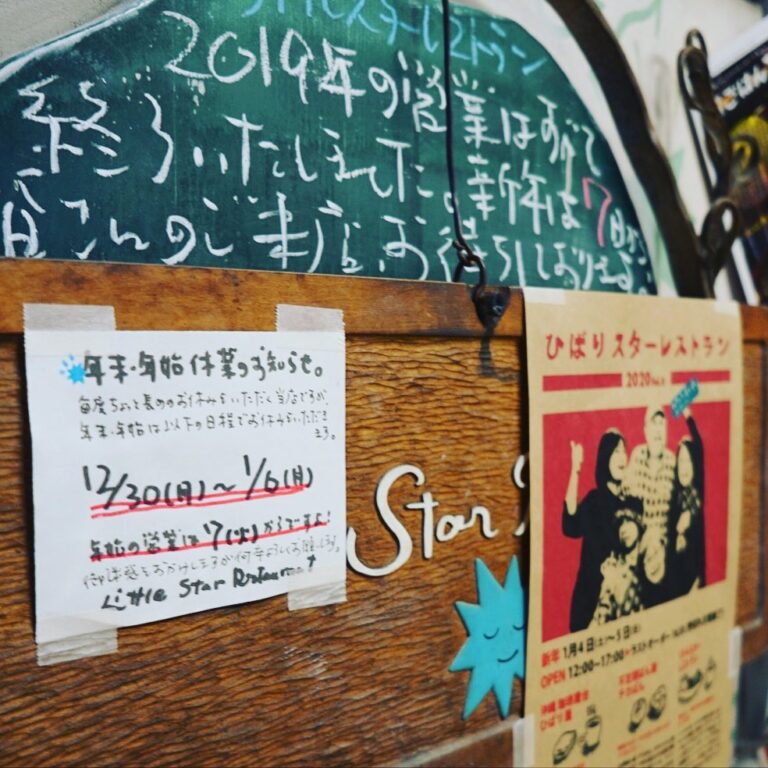 リトルスターレストラン
2019年の営業はすべて
終了いたしました。新年は7日から
皆さんのご来店お待ちしております。
年末・年始休業のお知らせ。
毎度ちょっと長めのお休みをいただく当店ですが、
年末・年始は以下の日程でお休みいただき
ます。
12/30(月)~1/6(月)
年始の営業は1/7(火)からですよ!
御迷惑をおかけしますが何卒よろしくお願いします。
Little Star Restaurant
Star
ひばりスターレストラン
2020
新年 1月4日(土)~5日(日)
OPEN 12:00~17:00
沖縄 珈琲屋台
ひばり屋
ごはん